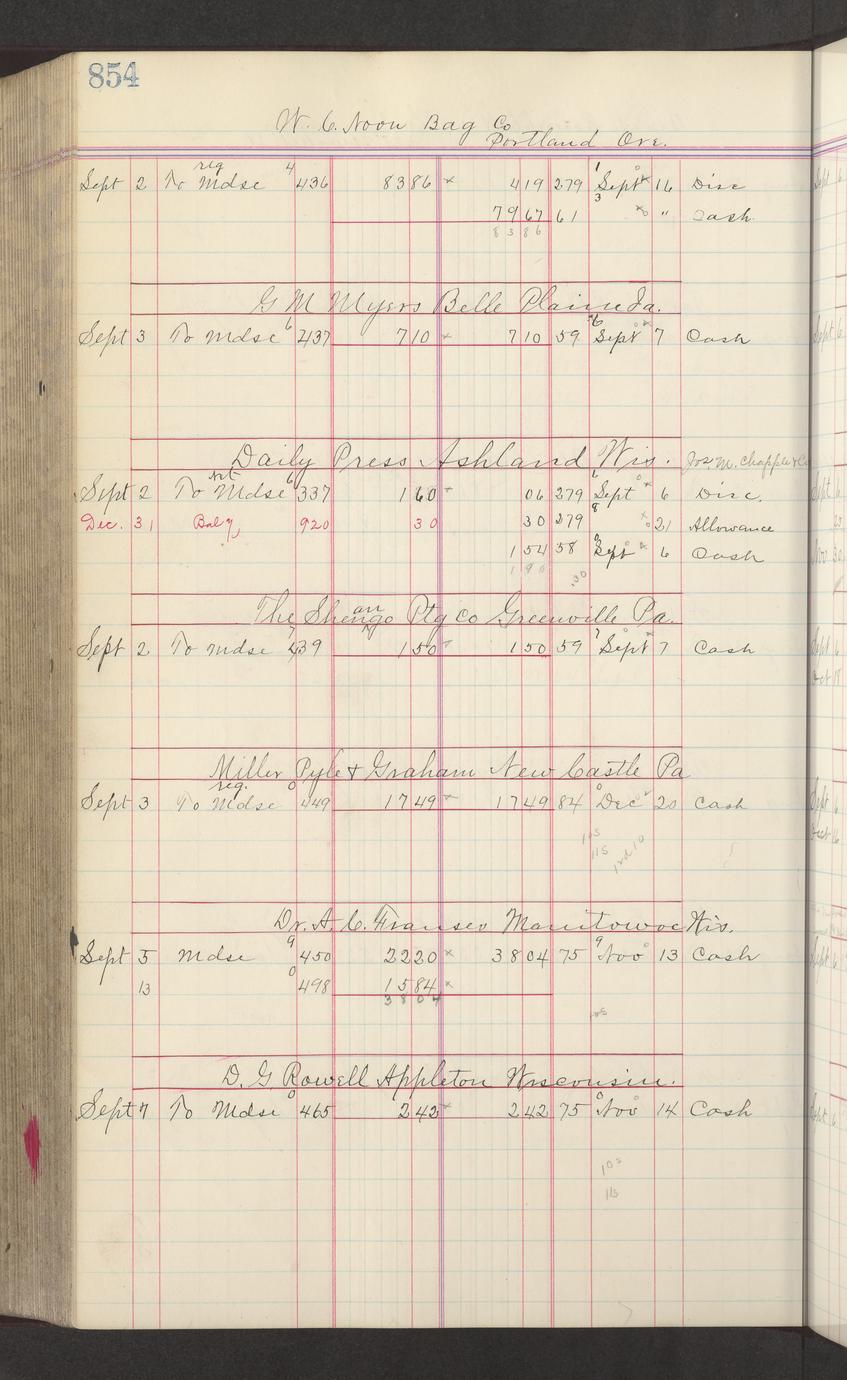 854
W. C. Noon Bag Co
Portland Ore.
reg 4 1
Sept 2 To Mdse 436 8386 × 419 279 Sept × 16 Disc
3
7967 61 × " Cash
8386
G M Myers Belle Plaine Ia.
Sept 3 To Mdse 6 437 710 × 710 59 6 Sept × 7 Cash
Daily Press Ashland Wis. Jos. M. Chapple & Co
Sept 2 To Mdse 6 337 160 × 06 279 Sept × 6 Disc.
8
Dec. 31 Bal 920 30 30 279 × 21 Allowance
154 58 Sept × 6 Cash
190 .30
an
The Shenngo Ptg Co Greenville Pa.
Sept 2 To Mdse 7 439 150 × 150 59 7 Sept × 7 Cash
Miller Pyle & Graham New Castle Pa
reg. 0
Sept 3 To Mdse 449 1749 × 1749 84 0 Dec 20 Cash
10s
11s
Dr. A. C. Franseo Manitowoc Wis.
Sept 5 Mdse 9 450 2220 × 3804 75 9 Nov 13 Cash
0
13 498 1584 ×
3804
10s
D. G Rowell Appleton Wisconsin.
Sept 7 To Mdse 0 465 242 × 242 75 0 Nov 14 Cash
10s
11s